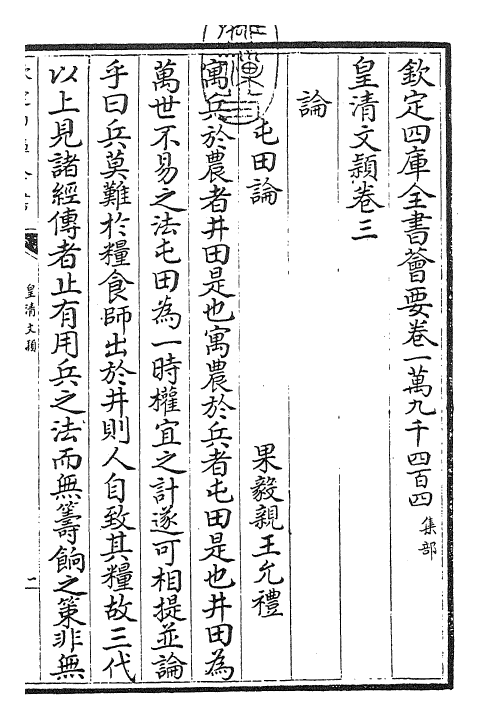 欽定四庫全書薈要卷一萬九千四百四 集部
皇清文穎卷三
論
屯田論 果毅親王允禮
寓兵於農者井田是也寓農於兵者屯田是也井田為
萬世不易之法屯田為一時權宜之計遂可相提並論
乎曰兵莫難於糧食師出於井則人自致其糧故三代
以上見諸經傳者止有用兵之法而無籌餉之策非無
皇清文穎